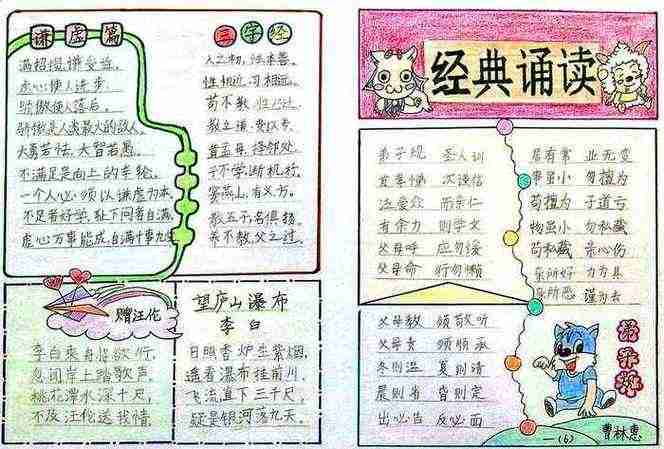 谦虚篇
满招损,谦受益。
虚心使人进步,
骄傲使人落后。
骄傲是人类最大的敌人。
大勇若怯,大智若愚。
不满足是向上的车轮。
一个人必须以谦虚为本。
不足者好学,耻下问者自满。
虚心万事能成,自满十事九空
三字经
人之初,性本善。
性相近,习相远。
苟不教,性乃迁。
教之道,贵以专。
昔孟母,择邻处。
子不学,断机杼。
窦燕山,有义方。
教五子,名俱扬。
养不教,父之过。
赠汪伦
李白乘舟将欲行,
忽闻岸上踏歌声。
桃花潭水深千尺,
不及汪伦送我情。
望庐山瀑布
李白
日照香炉生紫烟,
遥看瀑布挂前川。
飞流直下三千尺,
疑是银河落九天。
经典诵读
弟子规 圣人训
首孝悌 次谨信
泛爱众 而亲仁
有余力 则学文
父母呼 应勿缓
父母命 行勿懒
父母教 须敬听
父母责 须顺承
冬则温 夏则清
晨则省 昏则定
出必告 反必面
居有常 业无变
事虽小 勿擅为
苟擅为 子道亏
物虽小 勿私藏
苟私藏 亲心伤
亲所好 力为具
亲所恶 谨为去
弟子规
一(6)
曹林惠